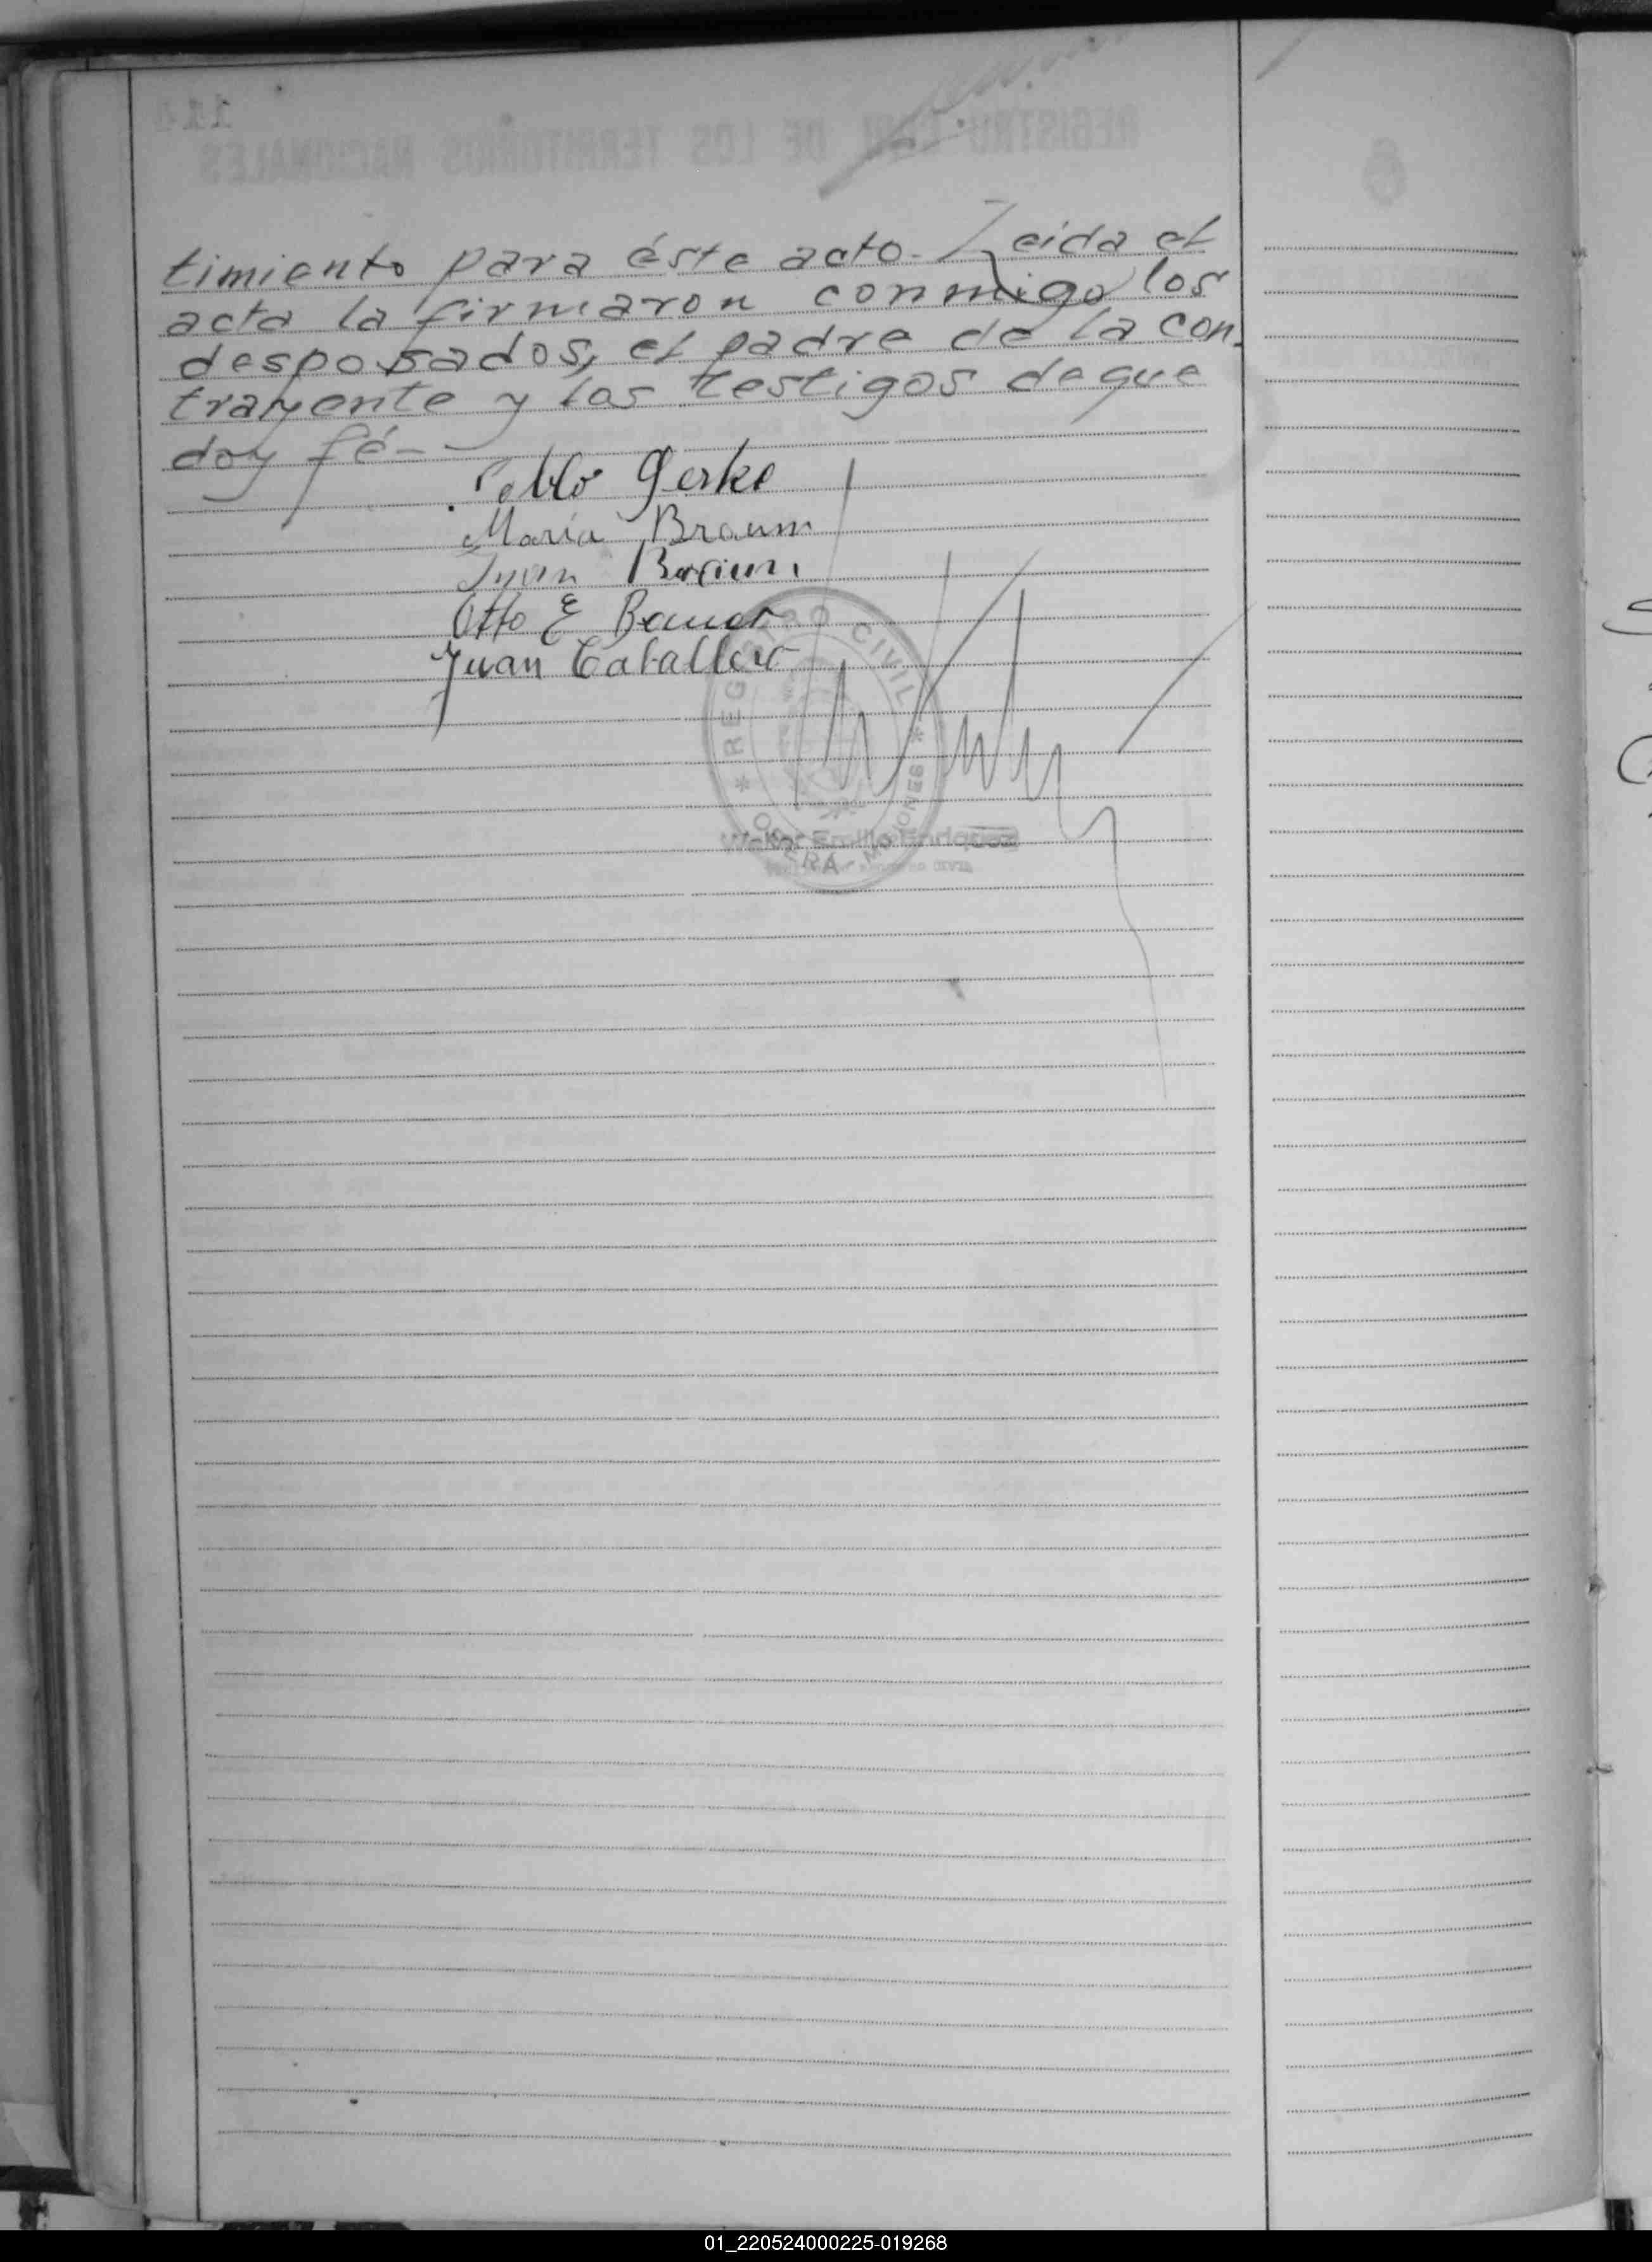 timiento para éste acto. Leida el
acta la firmaron conmigo los
desposados, el padre de la con-
trayente y los testigos de que
doy fé-
Pablo Gerke
Maria Braun
Juan
Otto E Bauer
Juan Caballero
* REGISTRO CIVIL *
OBERA - MISIONES
01_220524000225-019268